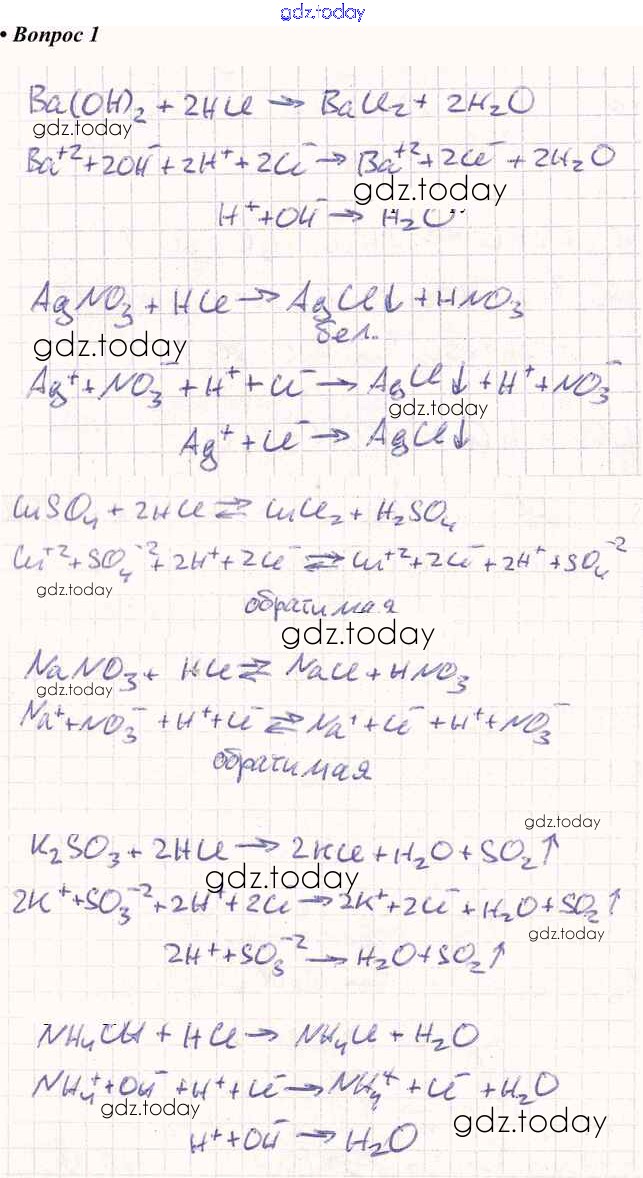 gdz.today
• Вопрос 1
Ba(OH)₂ + 2HCl → BaCl₂ + 2H₂O
gdz.today
Ba⁺² + 2OH⁻ + 2H⁺ + 2Cl⁻ → Ba⁺² + 2Cl⁻ + 2H₂O
gdz.today
H⁺ + OH⁻ → H₂O
AgNO₃ + HCl → AgCl↓ + HNO₃
бел.
gdz.today
Ag⁺ + NO₃⁻ + H⁺ + Cl⁻ → AgCl↓ + H⁺ + NO₃⁻
gdz.today
Ag⁺ + Cl⁻ → AgCl↓
CuSO₄ + 2HCl ⇄ CuCl₂ + H₂SO₄
Cu⁺² + SO₄⁻² + 2H⁺ + 2Cl⁻ ⇄ Cu⁺² + 2Cl⁻ + 2H⁺ + SO₄⁻²
gdz.today
обратимая
gdz.today
NaNO₃ + HCl ⇄ NaCl + HNO₃
gdz.today
Na⁺ + NO₃⁻ + H⁺ + Cl⁻ ⇄ Na⁺ + Cl⁻ + H⁺ + NO₃⁻
обратимая
gdz.today
K₂SO₃ + 2HCl → 2KCl + H₂O + SO₂↑
gdz.today
2K⁺ + SO₃⁻² + 2H⁺ + 2Cl → 2K⁺ + 2Cl⁻ + H₂O + SO₂↑
gdz.today
2H⁺ + SO₃⁻² → H₂O + SO₂↑
NH₄OH + HCl → NH₄Cl + H₂O
NH₄⁺ + OH⁻ + H⁺ + Cl⁻ → NH₄⁺ + Cl⁻ + H₂O
gdz.today
gdz.today
H⁺ + OH⁻ → H₂O